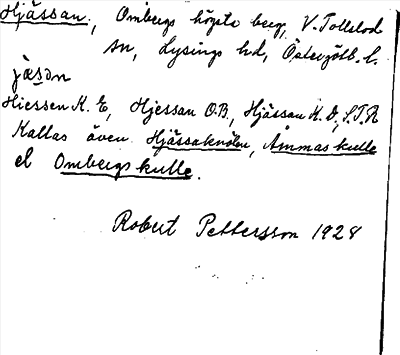 Hjässan, Ombergs högsta berg, V. Tollstad
sn, Lysings hd, Östergötl. l.
jäsən
Hiessen K. E, Hjessan O.B., Hjässan K. D, S.T.R
Kallas även Hjässaknölen, Ämmas kulle
el Ombergs kulle.
Robert Pettersson 1928